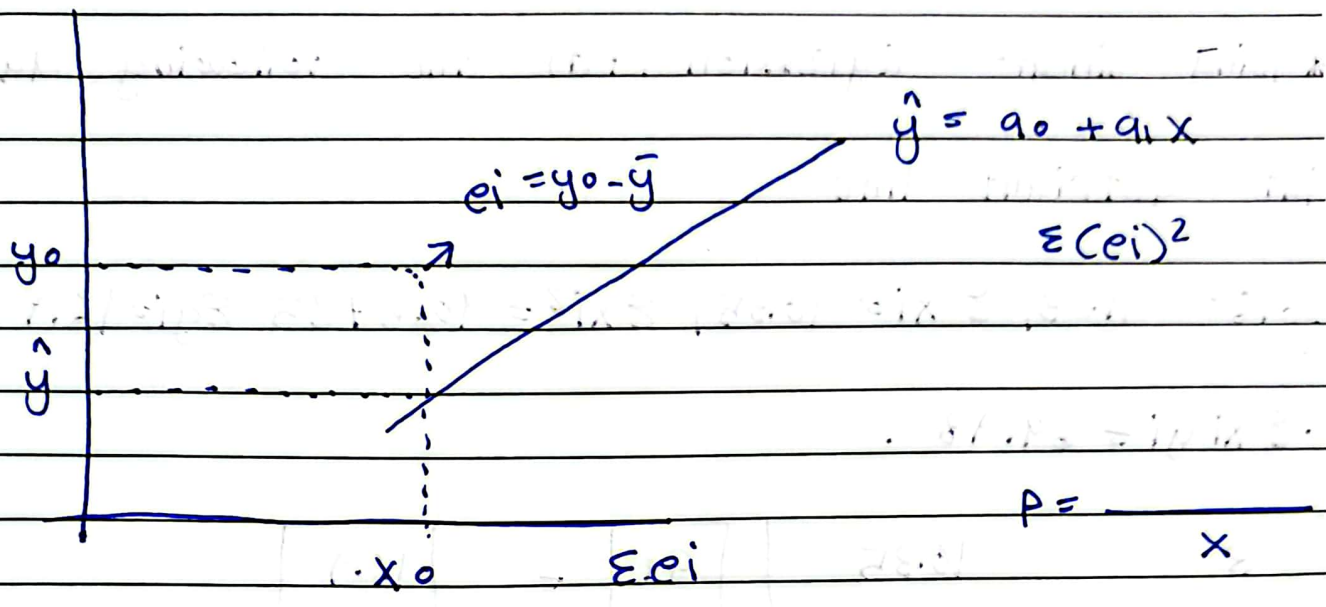 ŷ = a0 + a1 x
ei = y0 - ȳ
Σ(ei)²
y0
ŷ
P = ――
x
x0
Σei